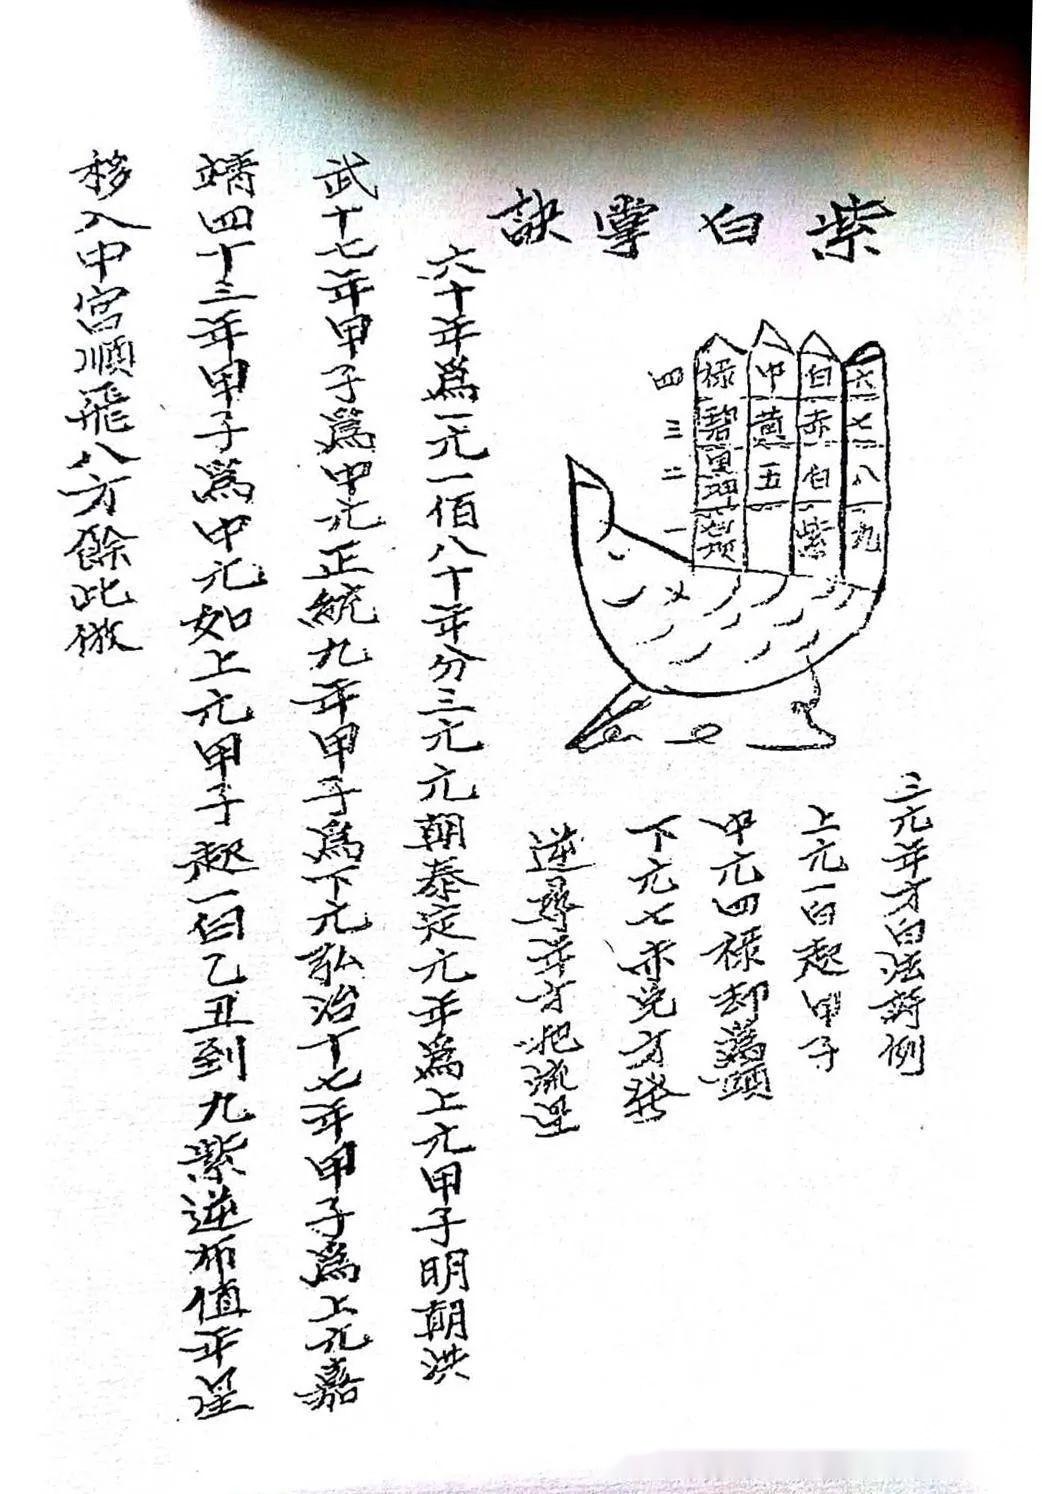 紫白掌訣
四 祿 中 白 六
三 碧 黃 赤 七
二 黑 五 白 八
一 紫 九
三元年方白法詩例
上元一白起甲子
中元四祿却為頭
下元七赤兌方發
逆尋年方把流星
六十年為一元一佰八十年分三元元朝泰定元年為上元甲子明朝洪
武十七年甲子為中元正統九年甲子為下元弘治十七年甲子為上元嘉
靖四十三年甲子為中元如上元甲子起一白乙丑到九紫逆布值年星
移入中宮順飛八方餘此倣